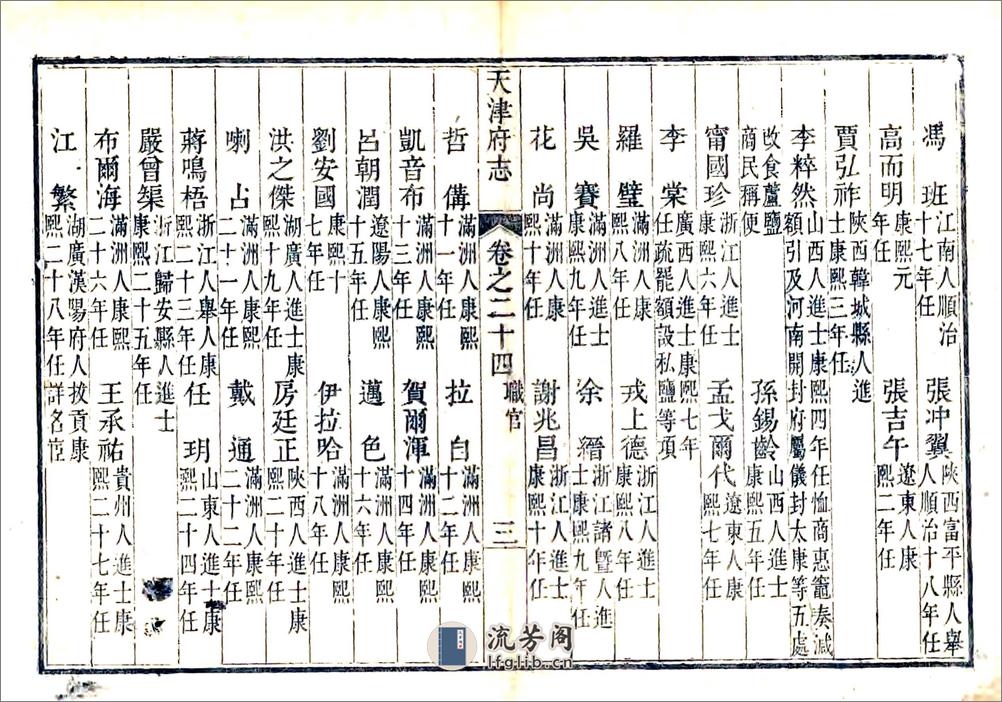 馮班江南人順治十七年任　張冲翼陝西富平縣人舉人順治十八年任
高而明康熙元年任　張吉午遼東人康熙二年任
賈弘祚陝西韓城縣人進士康熙三年任
李粹然山西人進士康熙四年任恤商惠竈奏减額引及河南開封府屬儀封太康等五處
改食蘆鹽商民稱便　孫錫齡山西人進士康熙五年任
甯國珍浙江人進士康熙六年任　孟戈爾代遼東人康熙七年任
李棠廣西人進士康熙七年任疏罷額設私鹽等項
羅璧滿洲人康熙八年任　戎上德浙江人進士康熙八年任
吳賽滿洲人康熙九年任　余縉浙江諸暨人進士康熙九年任
花尚滿洲人康熙十年任　謝兆昌浙江人進士康熙十年任
天津府志　卷之二十四　職官　三
哲備滿洲人康熙十一年任　拉白滿洲人康熙十二年任
凱音布滿洲人康熙十三年任　賀爾渾滿洲人康熙十四年任
呂朝潤遼陽人康熙十五年任　邁色滿洲人康熙十六年任
劉安國康熙十七年任　伊拉哈滿洲人康熙十八年任
洪之傑湖廣人進士康熙十九年任　房廷正陝西人進士康熙二十年任
喇占滿洲人康熙二十一年任　戴通滿洲人康熙二十二年任
蔣鳴梧浙江人舉人康熙二十三年任　任玥山東人進士康熙二十四年任
嚴曾榘浙江歸安縣人進士康熙二十五年任
布爾海滿洲人康熙二十六年任　王承祐貴州人進士康熙二十七年任
江蘩湖廣漢陽府人拔貢康熙二十八年任詳名宦
流芳阁
lfglib.cn